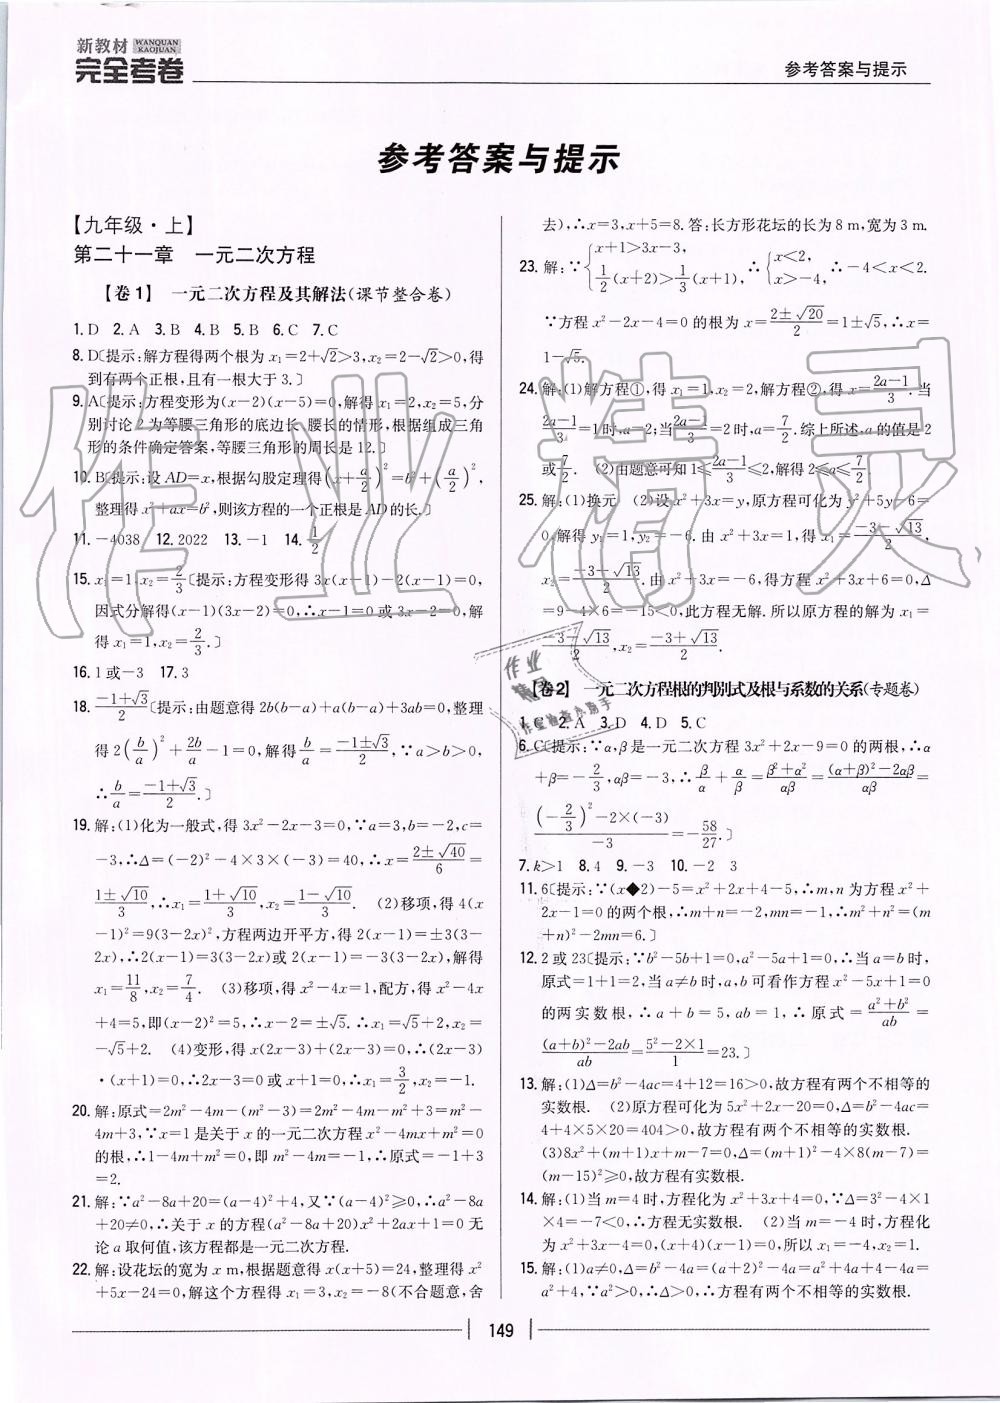 新教材 WANQUAN KAOJUAN
完全考卷
参考答案与提示
参考答案与提示
【九年级·上】
第二十一章 一元二次方程
【卷1】 一元二次方程及其解法(课节整合卷)
1. D 2. A 3. B 4. B 5. B 6. C 7. C
8. D〔提示:解方程得两个根为 x₁=2+√2>3,x₂=2-√2>0,得
到有两个正根,且有一根大于 3.〕
9. A〔提示:方程变形为(x-2)(x-5)=0,解得 x₁=2,x₂=5,分
别讨论 2 为等腰三角形的底边长、腰长的情形,根据组成三角
形的条件确定答案,等腰三角形的周长是 12.〕
10. B〔提示:设 AD=x,根据勾股定理得(x+a/2)²=b²+(a/2)²,
整理得 x²+ax=b²,则该方程的一个正根是 AD 的长.〕
11. -4038 12. 2022 13. -1 14. 1/2
15. x₁=1,x₂=2/3〔提示:方程变形得 3x(x-1)-2(x-1)=0,
因式分解得(x-1)(3x-2)=0,∴x-1=0 或 3x-2=0,解
得 x₁=1,x₂=2/3.〕
16. 1 或-3 17. 3
18. (-1+√3)/2〔提示:由题意得 2b(b-a)+a(b-a)+3ab=0,整理
得 2(b/a)²+2b/a-1=0,解得 b/a=(-1±√3)/2,∵a>b>0,
∴b/a=(-1+√3)/2.〕
19. 解:(1)化为一般式,得 3x²-2x-3=0,∵a=3,b=-2,c=
-3,∴Δ=(-2)²-4×3×(-3)=40,∴x=(2±√40)/6=
(1±√10)/3,∴x₁=(1+√10)/3,x₂=(1-√10)/3. (2)移项,得 4(x
-1)²=9(3-2x)²,方程两边开平方,得 2(x-1)=±3(3-
2x),∴2(x-1)=3(3-2x)或 2(x-1)=-3(3-2x),解得
x₁=11/8,x₂=7/4. (3)移项,得 x²-4x=1,配方,得 x²-4x
+4=5,即(x-2)²=5,∴x-2=±√5.∴x₁=√5+2,x₂=
-√5+2. (4)变形,得 x(2x-3)+(2x-3)=0,∴(2x-3)
·(x+1)=0,∴2x-3=0 或 x+1=0,∴x₁=3/2,x₂=-1.
20. 解:原式=2m²-4m-(m²-3)=2m²-4m-m²+3=m²-
4m+3,∵x=1 是关于 x 的一元二次方程 x²-4mx+m²=0
的根,∴1-4m+m²=0,即 m²-4m=-1,∴原式=-1+3
=2.
21. 解:∵a²-8a+20=(a-4)²+4,又∵(a-4)²≥0,∴a²-8a
+20≠0,∴关于 x 的方程(a²-8a+20)x²+2ax+1=0 无
论 a 取何值,该方程都是一元二次方程.
22. 解:设花坛的宽为 x m,根据题意得 x(x+5)=24,整理得 x²
+5x-24=0,解这个方程得 x₁=3,x₂=-8(不合题意,舍
去),∴x=3,x+5=8. 答:长方形花坛的长为 8 m,宽为 3 m.
23. 解:∵{x+1>3x-3, 1/2(x+2)>1/3(x+1), ∴{x<2, x>-4, ∴-4<x<2.
∵方程 x²-2x-4=0 的根为 x=(2±√20)/2=1±√5,∴x=
1-√5.
24. 解:(1)解方程①,得 x₁=1,x₂=2,解方程②,得 x=(2a-1)/3. 当
(2a-1)/3=1时,a=2;当(2a-1)/3=2时,a=7/2. 综上所述,a 的值是 2
或 7/2. (2)由题意可知 1≤(2a-1)/3≤2,解得 2≤a≤7/2.
25. 解:(1)换元 (2)设 x²+3x=y,原方程可化为 y²+5y-6=
0,解得 y₁=1,y₂=-6. 由 x²+3x=1,得 x₁=(-3-√13)/2,
x₂=(-3+√13)/2. 由 x²+3x=-6,得方程 x²+3x+6=0,Δ
=9-4×6=-15<0,此方程无解. 所以原方程的解为 x₁=
(-3-√13)/2,x₂=(-3+√13)/2.
【卷2】 一元二次方程根的判别式及根与系数的关系(专题卷)
1. C 2. A 3. D 4. D 5. C
6. C〔提示:∵α,β是一元二次方程 3x²+2x-9=0 的两根,∴α
+β=-2/3,αβ=-3,∴β/α+α/β=(β²+α²)/αβ=((α+β)²-2αβ)/αβ=
((-2/3)²-2×(-3))/(-3)=-58/27.〕
7. k>1 8. 4 9. -3 10. -2 3
11. 6〔提示:∵(x◆2)-5=x²+2x+4-5,∴m,n 为方程 x²+
2x-1=0 的两个根,∴m+n=-2,mn=-1,∴m²+n²=(m
+n)²-2mn=6.〕
12. 2 或 23〔提示:∵b²-5b+1=0,a²-5a+1=0,∴当 a=b 时,
原式=1+1=2,当 a≠b 时,a,b 可看作方程 x²-5x+1=0
的两实数根,∴a+b=5,ab=1,∴原式=(a²+b²)/ab=
((a+b)²-2ab)/ab=(5²-2×1)/1=23.〕
13. 解:(1)Δ=b²-4ac=4+12=16>0,故方程有两个不相等的
实数根. (2)原方程可化为 5x²+2x-20=0,Δ=b²-4ac=
4+4×5×20=404>0,故方程有两个不相等的实数根.
(3)8x²+(m+1)x+m-7=0,Δ=(m+1)²-4×8(m-7)=
(m-15)²≥0,故方程有实数根.
14. 解:(1)当 m=4 时,方程化为 x²+3x+4=0,∵Δ=3²-4×1
×4=-7<0,∴方程无实数根. (2)当 m=-4 时,方程化
为 x²+3x-4=0,(x+4)(x-1)=0,所以 x₁=-4,x₂=1.
15. 解:(1)a≠0,Δ=b²-4a=(a+2)²-4a=a²+4a+4-4a=
a²+4,∵a²>0,∴Δ>0,∴方程有两个不相等的实数根.
149
作业精灵
作业
精灵
作业检查小助手